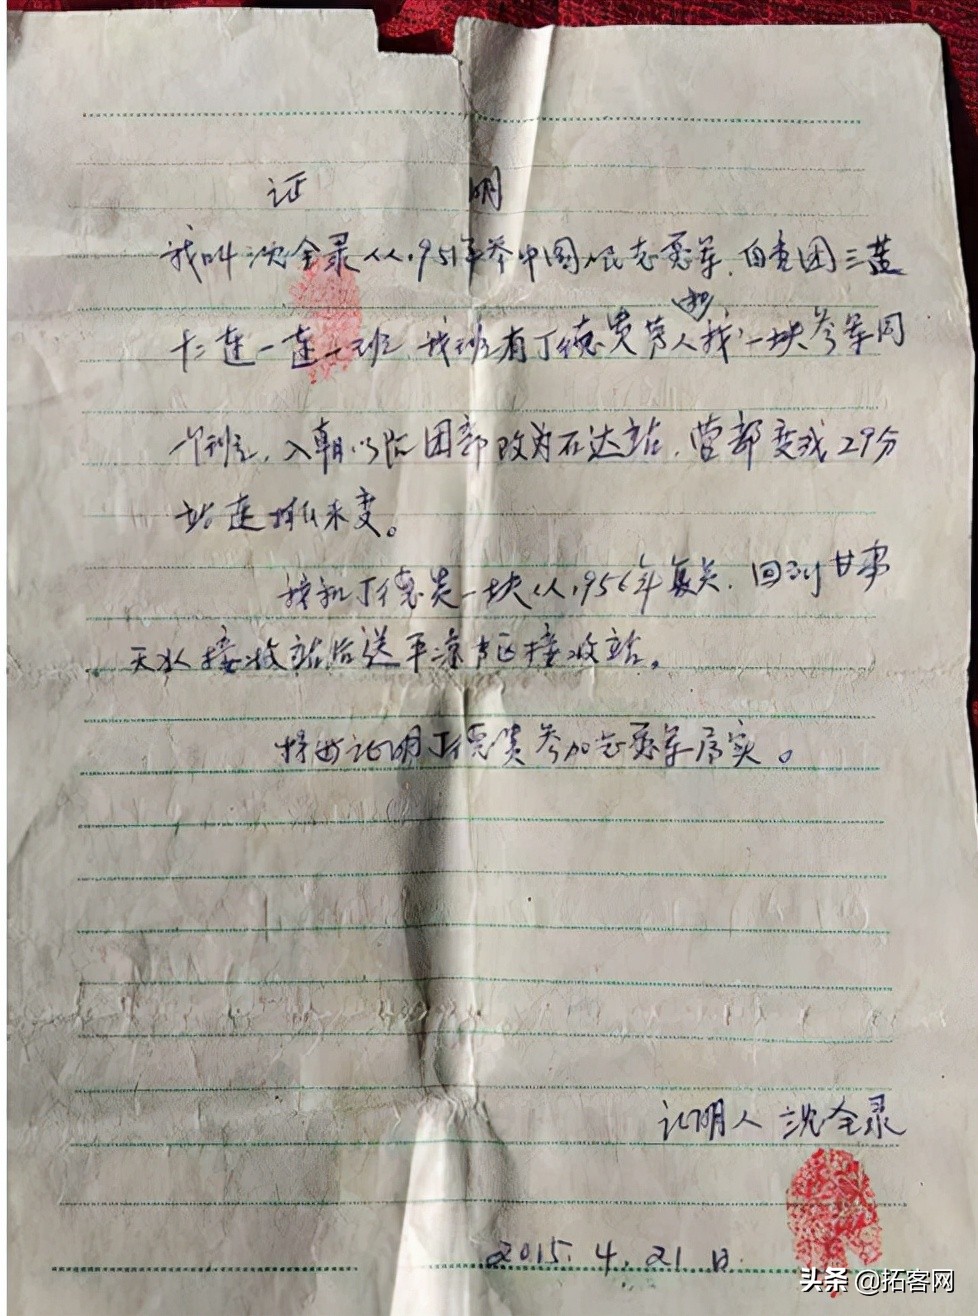 证 明
我叫沈全录从1951年参中国人民志愿军,自 团三营
十二连一连一班,我班有丁德贵等人和我一块参军同
个班,入朝以后团部改为 站,营部变成29分
站连排 未变。
我和丁德贵一块从1956年复员,回到甘肃
天水接收站后送平凉 区接收站。
特此证明丁德贵参加志愿军属实。
证明人 沈全录
2015.4.21日.
头条 @拓客网